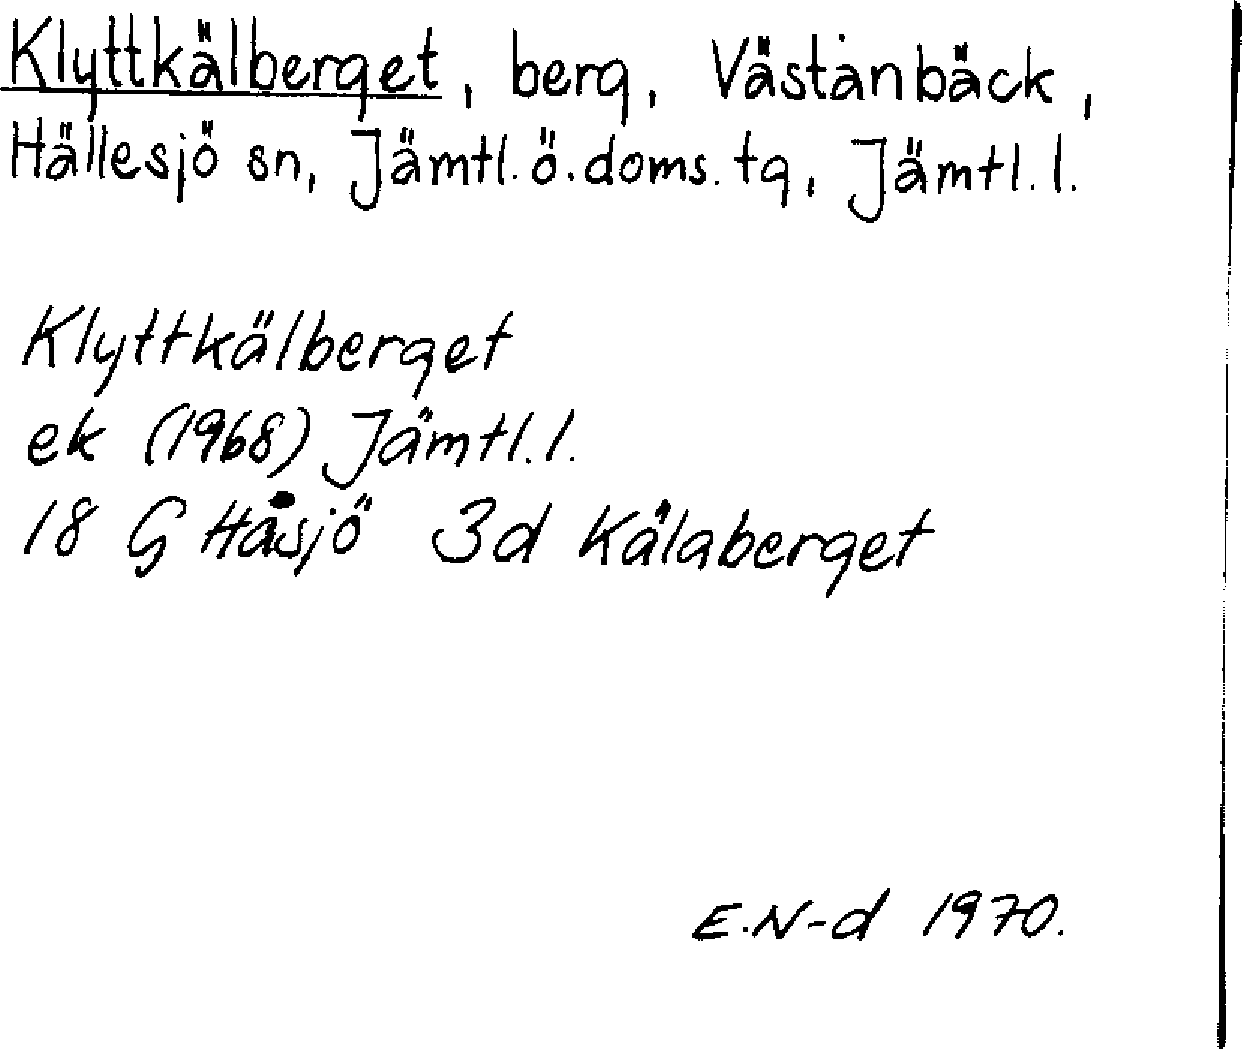 Klyttkälberget, berg, Västanbäck,
Hällesjö sn, Jämtl.ö.doms.tg, Jämtl.l.
Klyttkälberget
ek (1968) Jämtl.l.
18 G Håsjö 3d Kälaberget
E.N-d 1970.